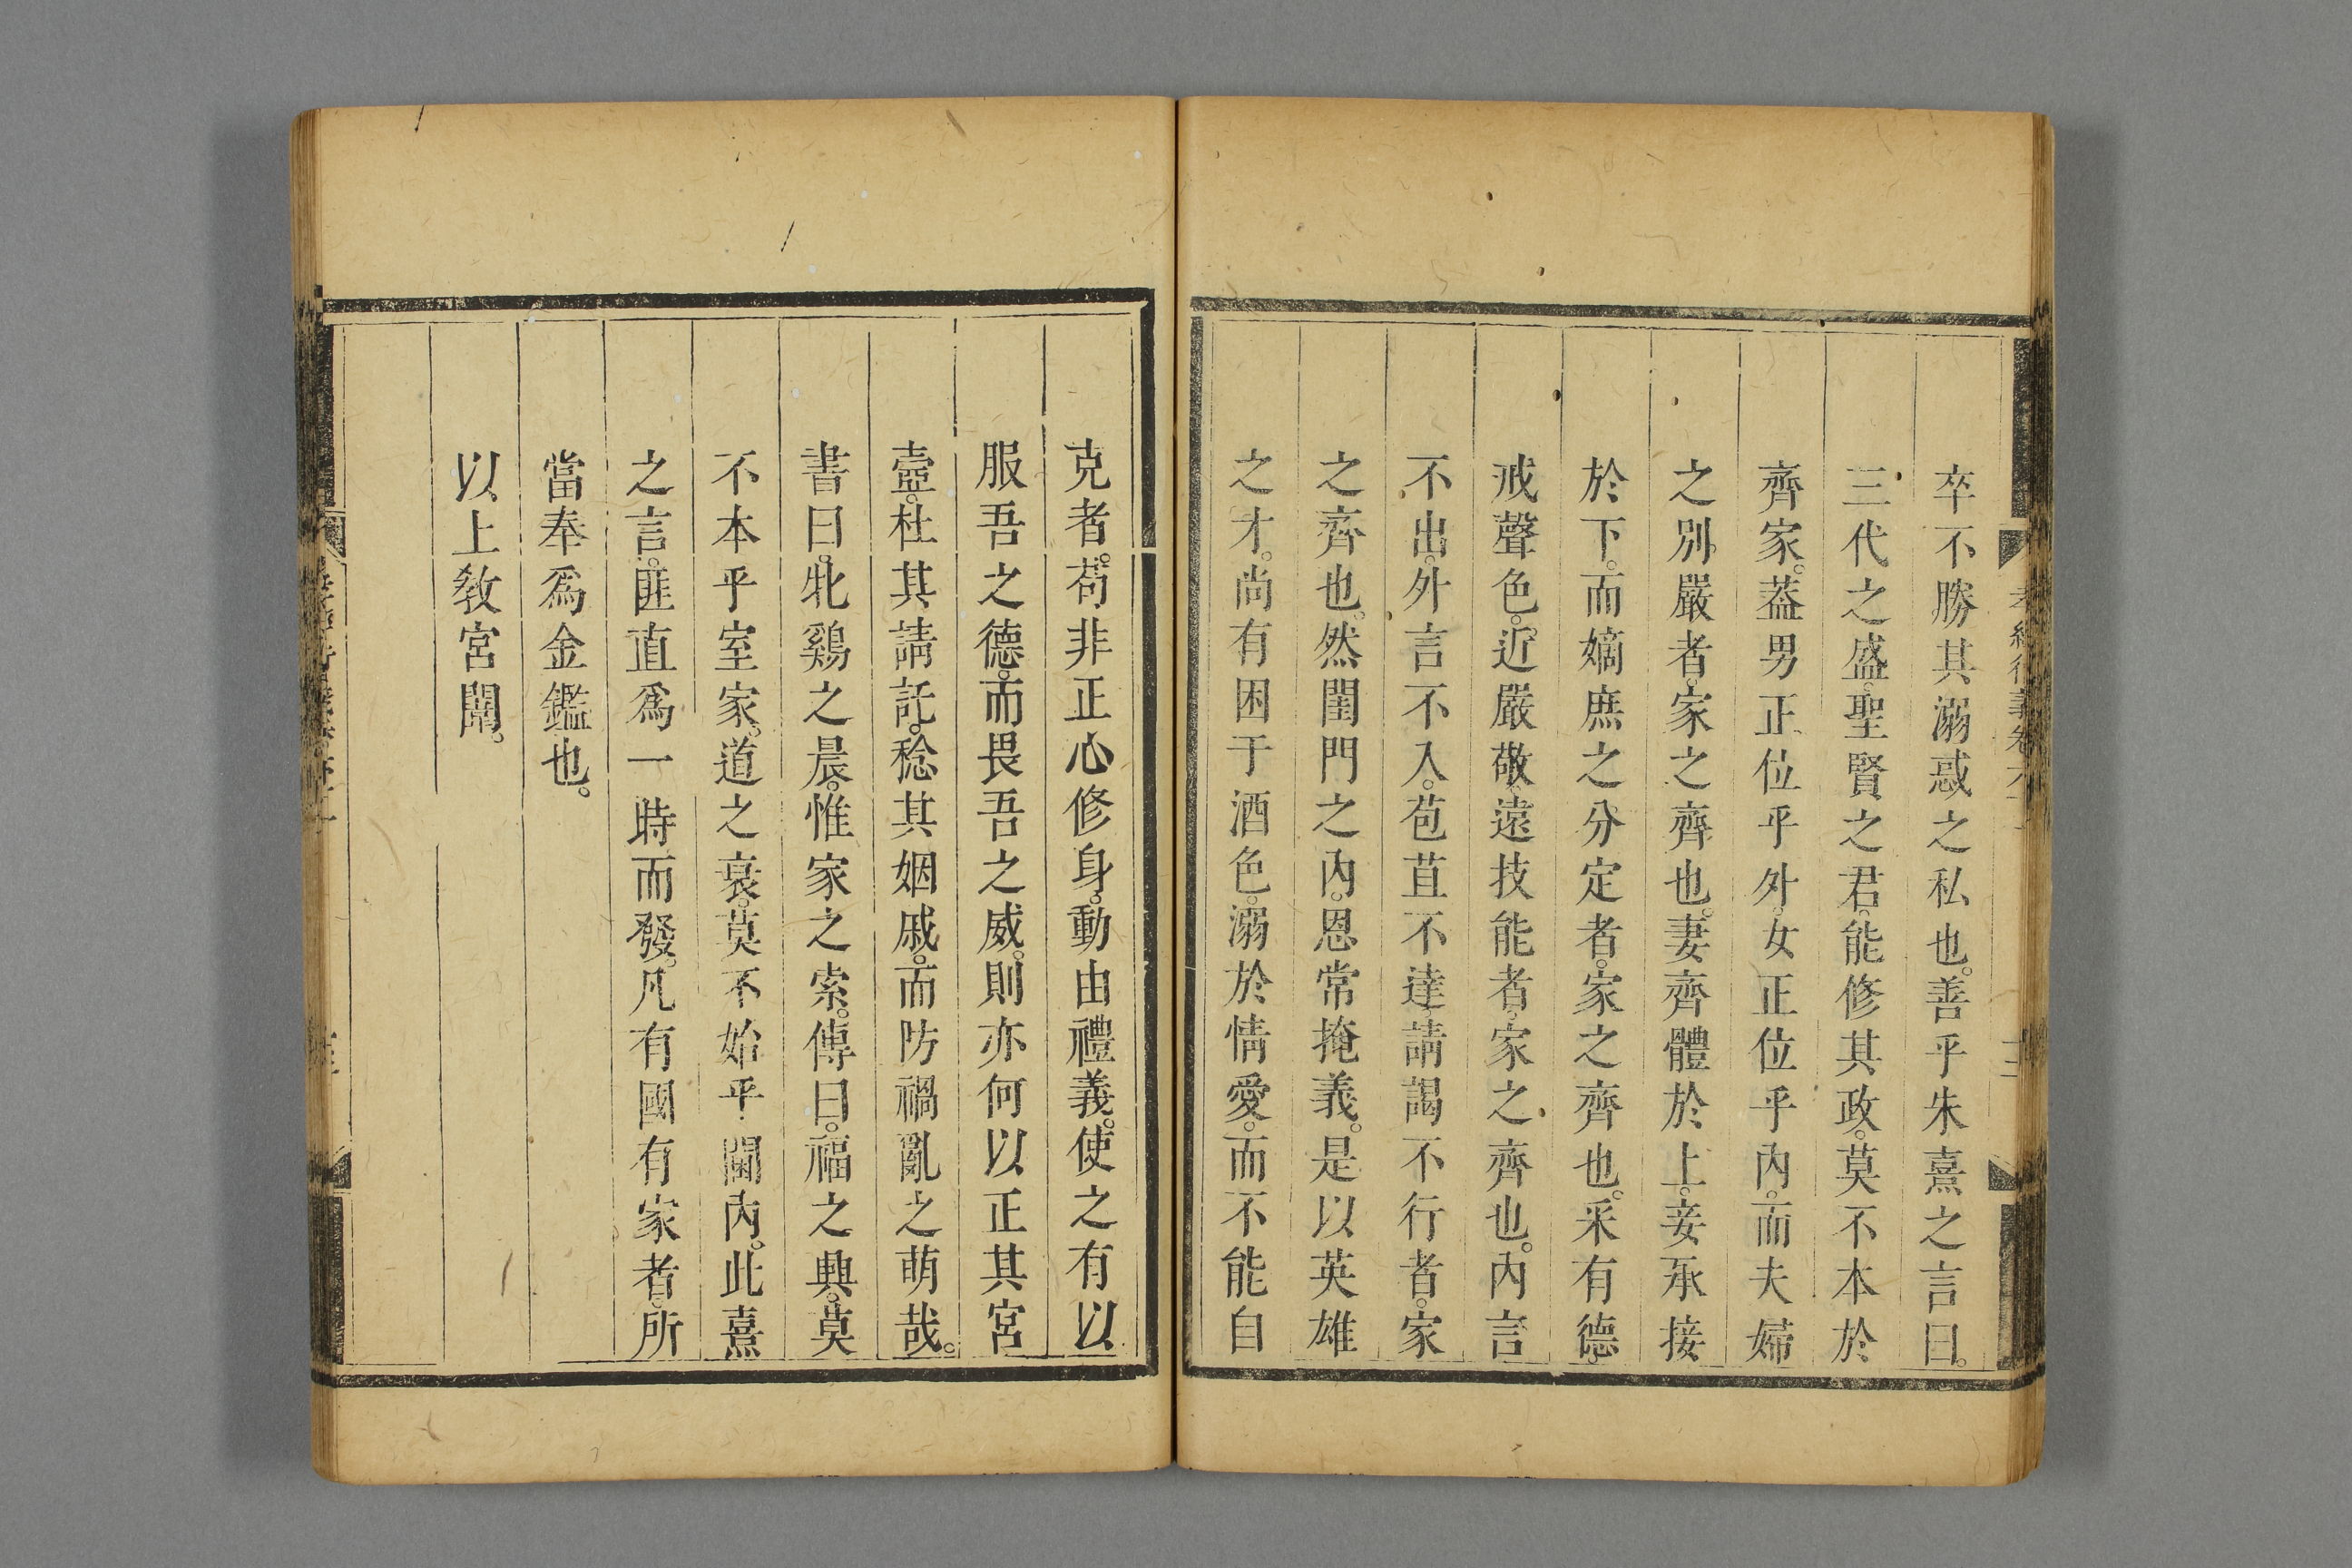 卒不勝其溺惑之私也。善乎朱熹之言曰。
三代之盛。聖賢之君。能修其政。莫不本於
齊家。葢男正位乎外。女正位乎內。而夫婦
之別嚴者。家之齊也。妻齊體於上。妾承接
於下。而嫡庶之分定者。家之齊也。采有德。
戒聲色。近嚴敬。遠技能者。家之齊也。內言
不出。外言不入。苞苴不達。請謁不行者。家
之齊也。然閨門之內。恩常掩義。是以英雄
之才。尚有困于酒色。溺於情愛。而不能自
克者。苟非正心修身。動由禮義。使之有以
服吾之德。而畏吾之威。則亦何以正其宮
壼。杜其請託。稔其姻戚。而防禍亂之萌哉。
書曰。牝鷄之晨。惟家之索。傳曰。福之興。莫
不本乎室家。道之衰。莫不始乎閫內。此熹
之言。匪直爲一時而發。凡有國有家者。所
當奉爲金鑑也。
以上敎宮闈。